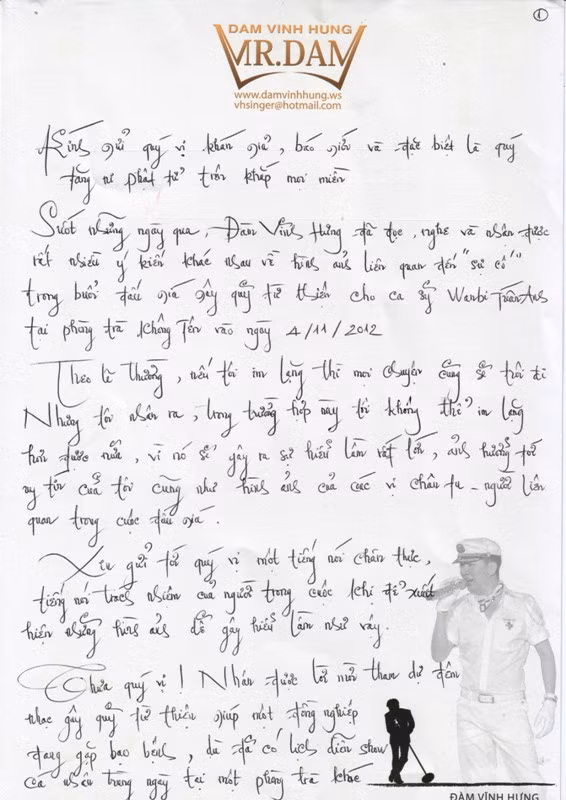 1
ĐÀM VĨNH HƯNG
MR.DAM
www.damvinhhung.ws
vhsinger@hotmail.com
Kính gửi quý vị khán giả, báo giới và đặc biệt là quý
tăng ni phật tử trên khắp mọi miền
Suốt những ngày qua, Đàm Vĩnh Hưng đã đọc, nghe và nhận được
rất nhiều ý kiến khác nhau về hình ảnh liên quan đến "sự cố"
trong buổi đấu giá gây quỹ từ thiện cho ca sỹ Wanbi Tuấn Anh
tại phòng trà Không Tên vào ngày 4/11/2012
Theo lẽ thường, nếu tôi im lặng thì mọi chuyện cũng sẽ trôi đi
Nhưng tôi nhận ra, trong trường hợp này tôi không thể im lặng
hơn được nữa, vì nó sẽ gây ra sự hiểu lầm rất lớn, ảnh hưởng tới
uy tín của tôi cũng như hình ảnh của các vị chân tu - người liên
quan trong cuộc đấu giá.
Xin gửi tới quý vị một tiếng nói chân thực,
tiếng nói trách nhiệm của người trong cuộc khi để xuất
hiện những hình ảnh dễ gây hiểu lầm như vậy.
Thưa quý vị! Nhận được lời mời tham dự đêm
nhạc gây quỹ từ thiện giúp một đồng nghiệp
đang gặp bạo bệnh, dù đã có lịch diễn show
cá nhân trong ngày tại một phòng trà khác
ĐÀM VĨNH HƯNG